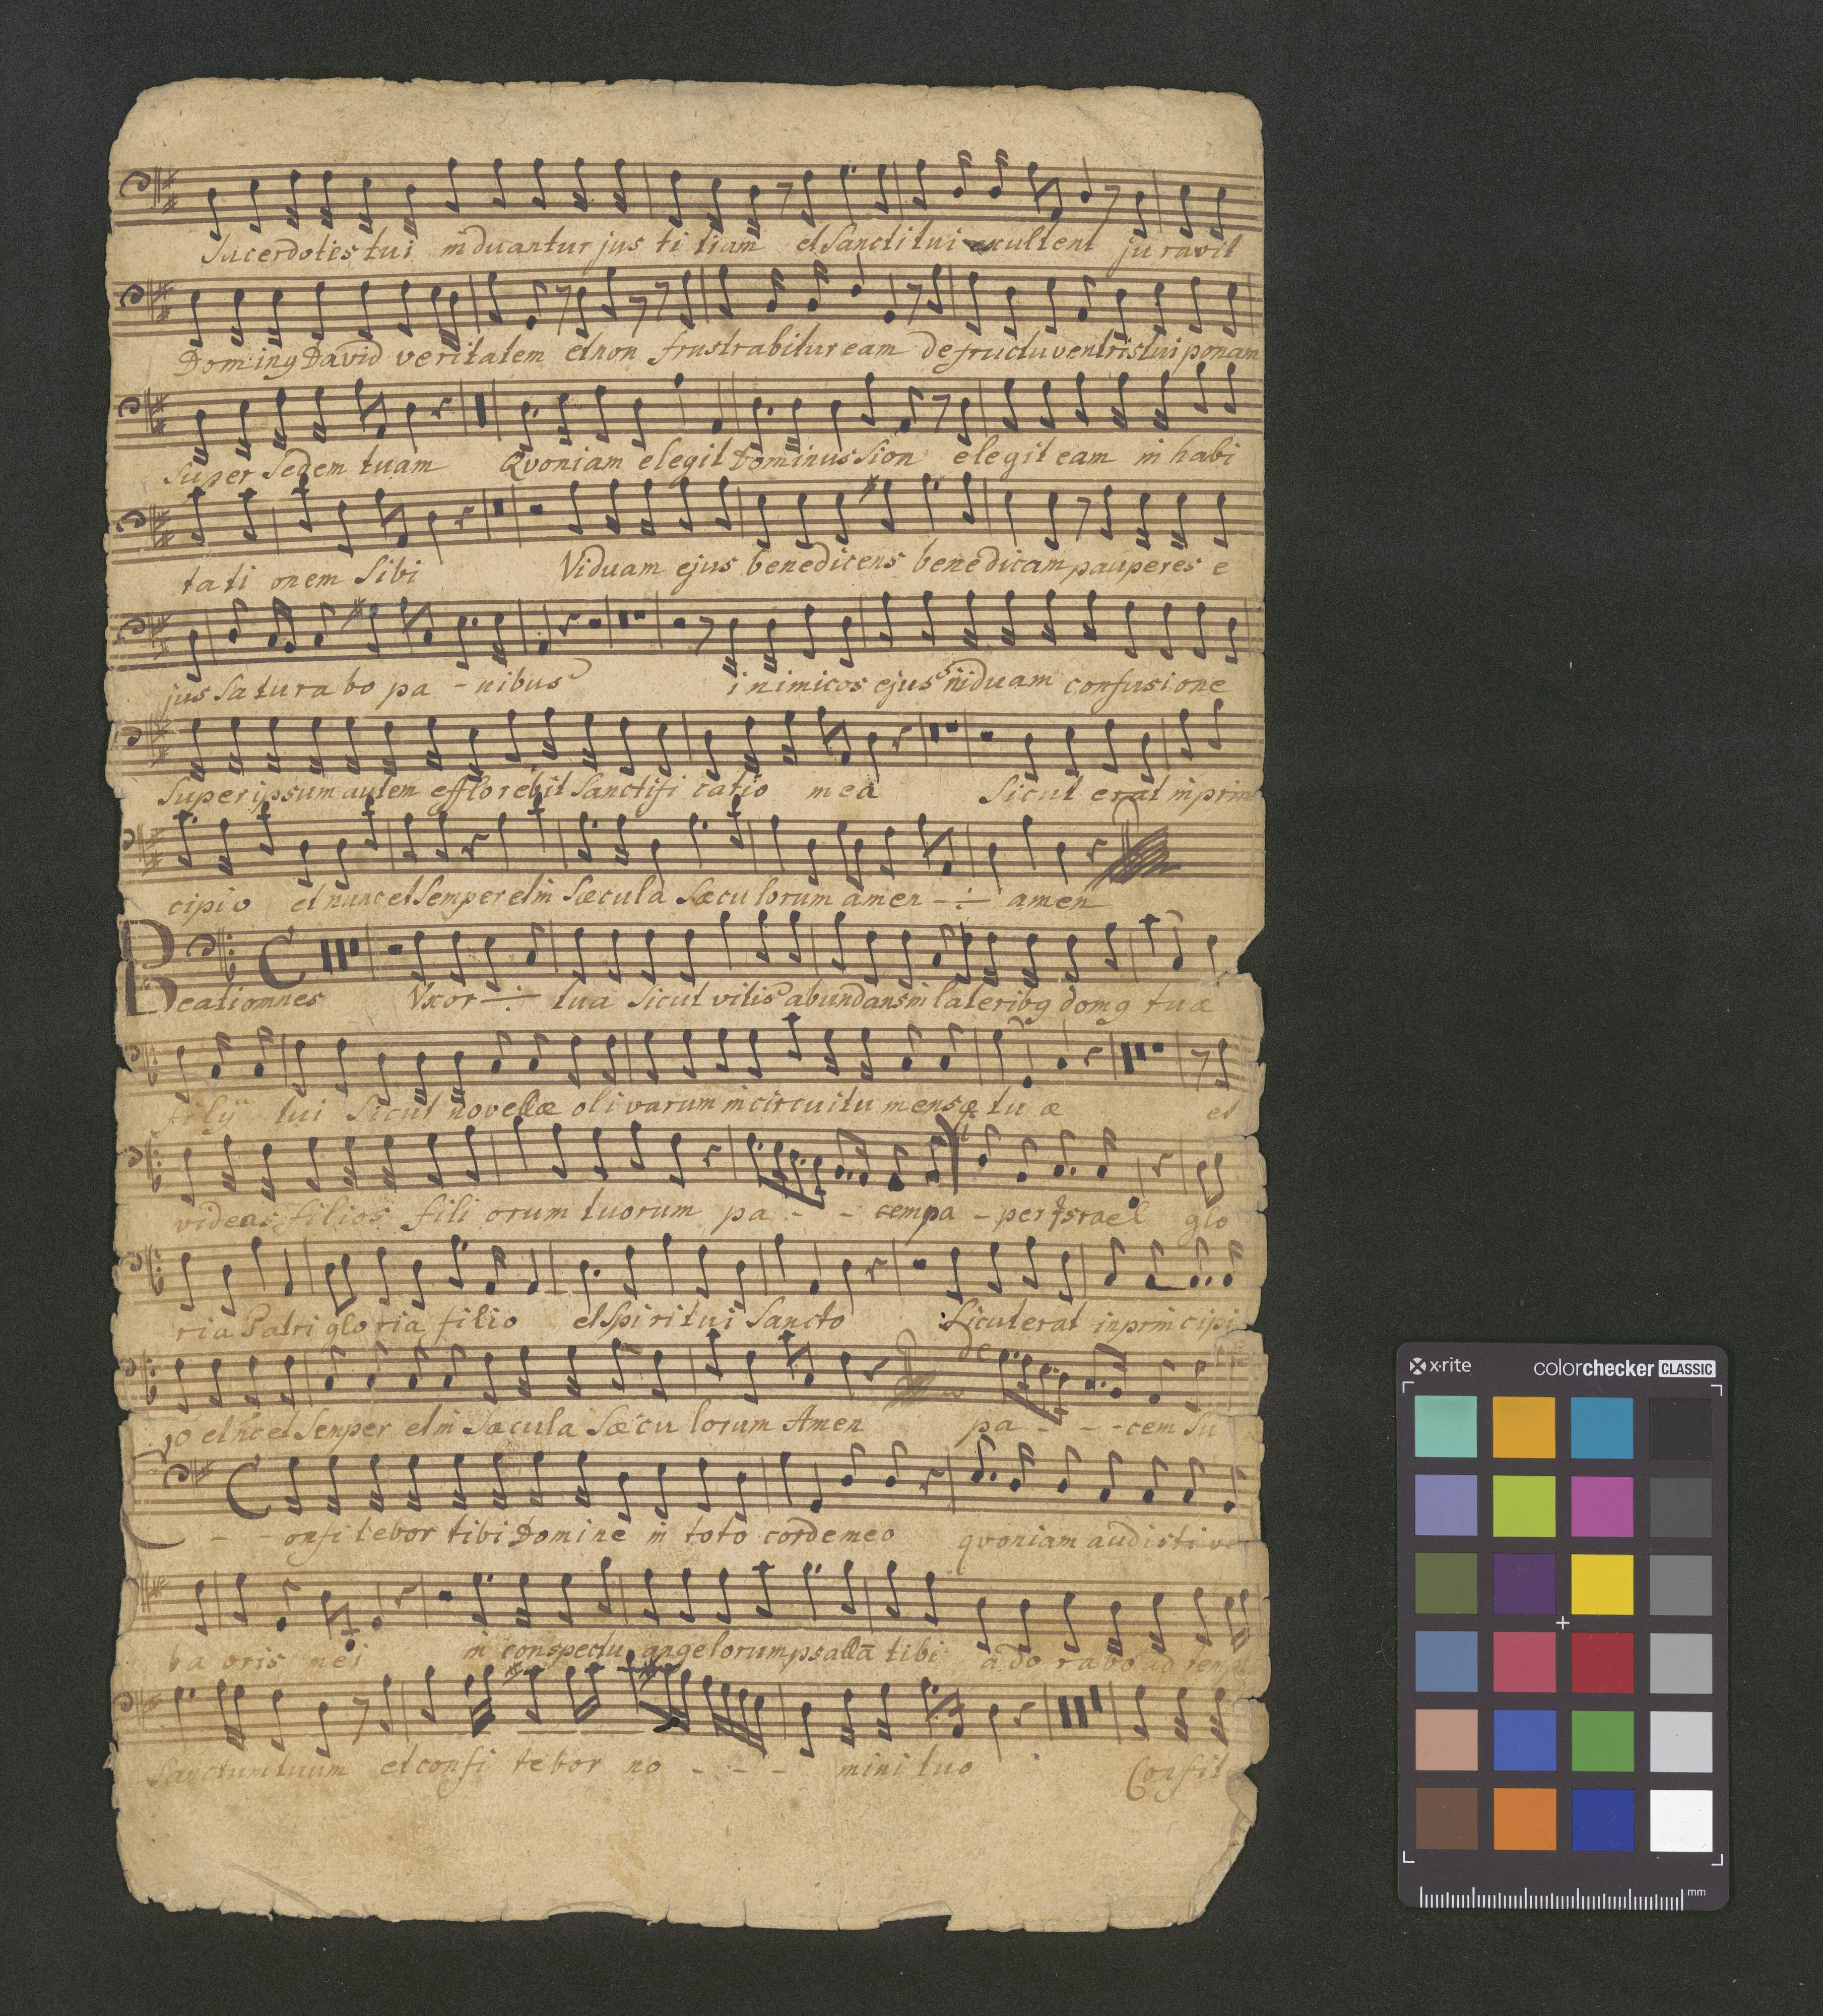 Sacerdotes tui induantur jus ti tiam et Sancti tui exultent ju ravit
Doming David veritatem et non frustrabitur eam de fructu ventris tui ponam
Super Sedem tuam Qvoniam elegit Dominus Sion elegit eam in habi
ta ti onem Sibi Viduam ejus benedicens benedicam pauperes e
jus Sa tu ra bo pa - nibus inimicos ejus induam confusione
Super ipsum autem efflorebit Sanctifi catio mea Sicut erat in prin
cipi o et nunc et Semper et in Sæcula Sæcu lorum amen -÷- amen
Beati omnes Vxor -÷- tua Sicut vitis abundans in lateribg domg tuæ
filÿ tui Sicut novellæ oli varum in circuitu mensæ tu æ et
videas filios fili orum tuorum pa - - cem pa - per Israel glo
ria Patri glo ria filio et Spiritui Sancto Sicut erat in principi
o et nc et Semper et in Sæcula Sæcu lorum Amen pa - - - cem Su
- - onfi tebor tibi Domine in toto corde meo qvoniam audisti ve
ba oris mei in conspectu angelorum psallā tibi a do ra bo ad tem
Sanctum tuum et confi tebor no - - - mini tuo Confit
x·rite colorchecker CLASSIC
mm